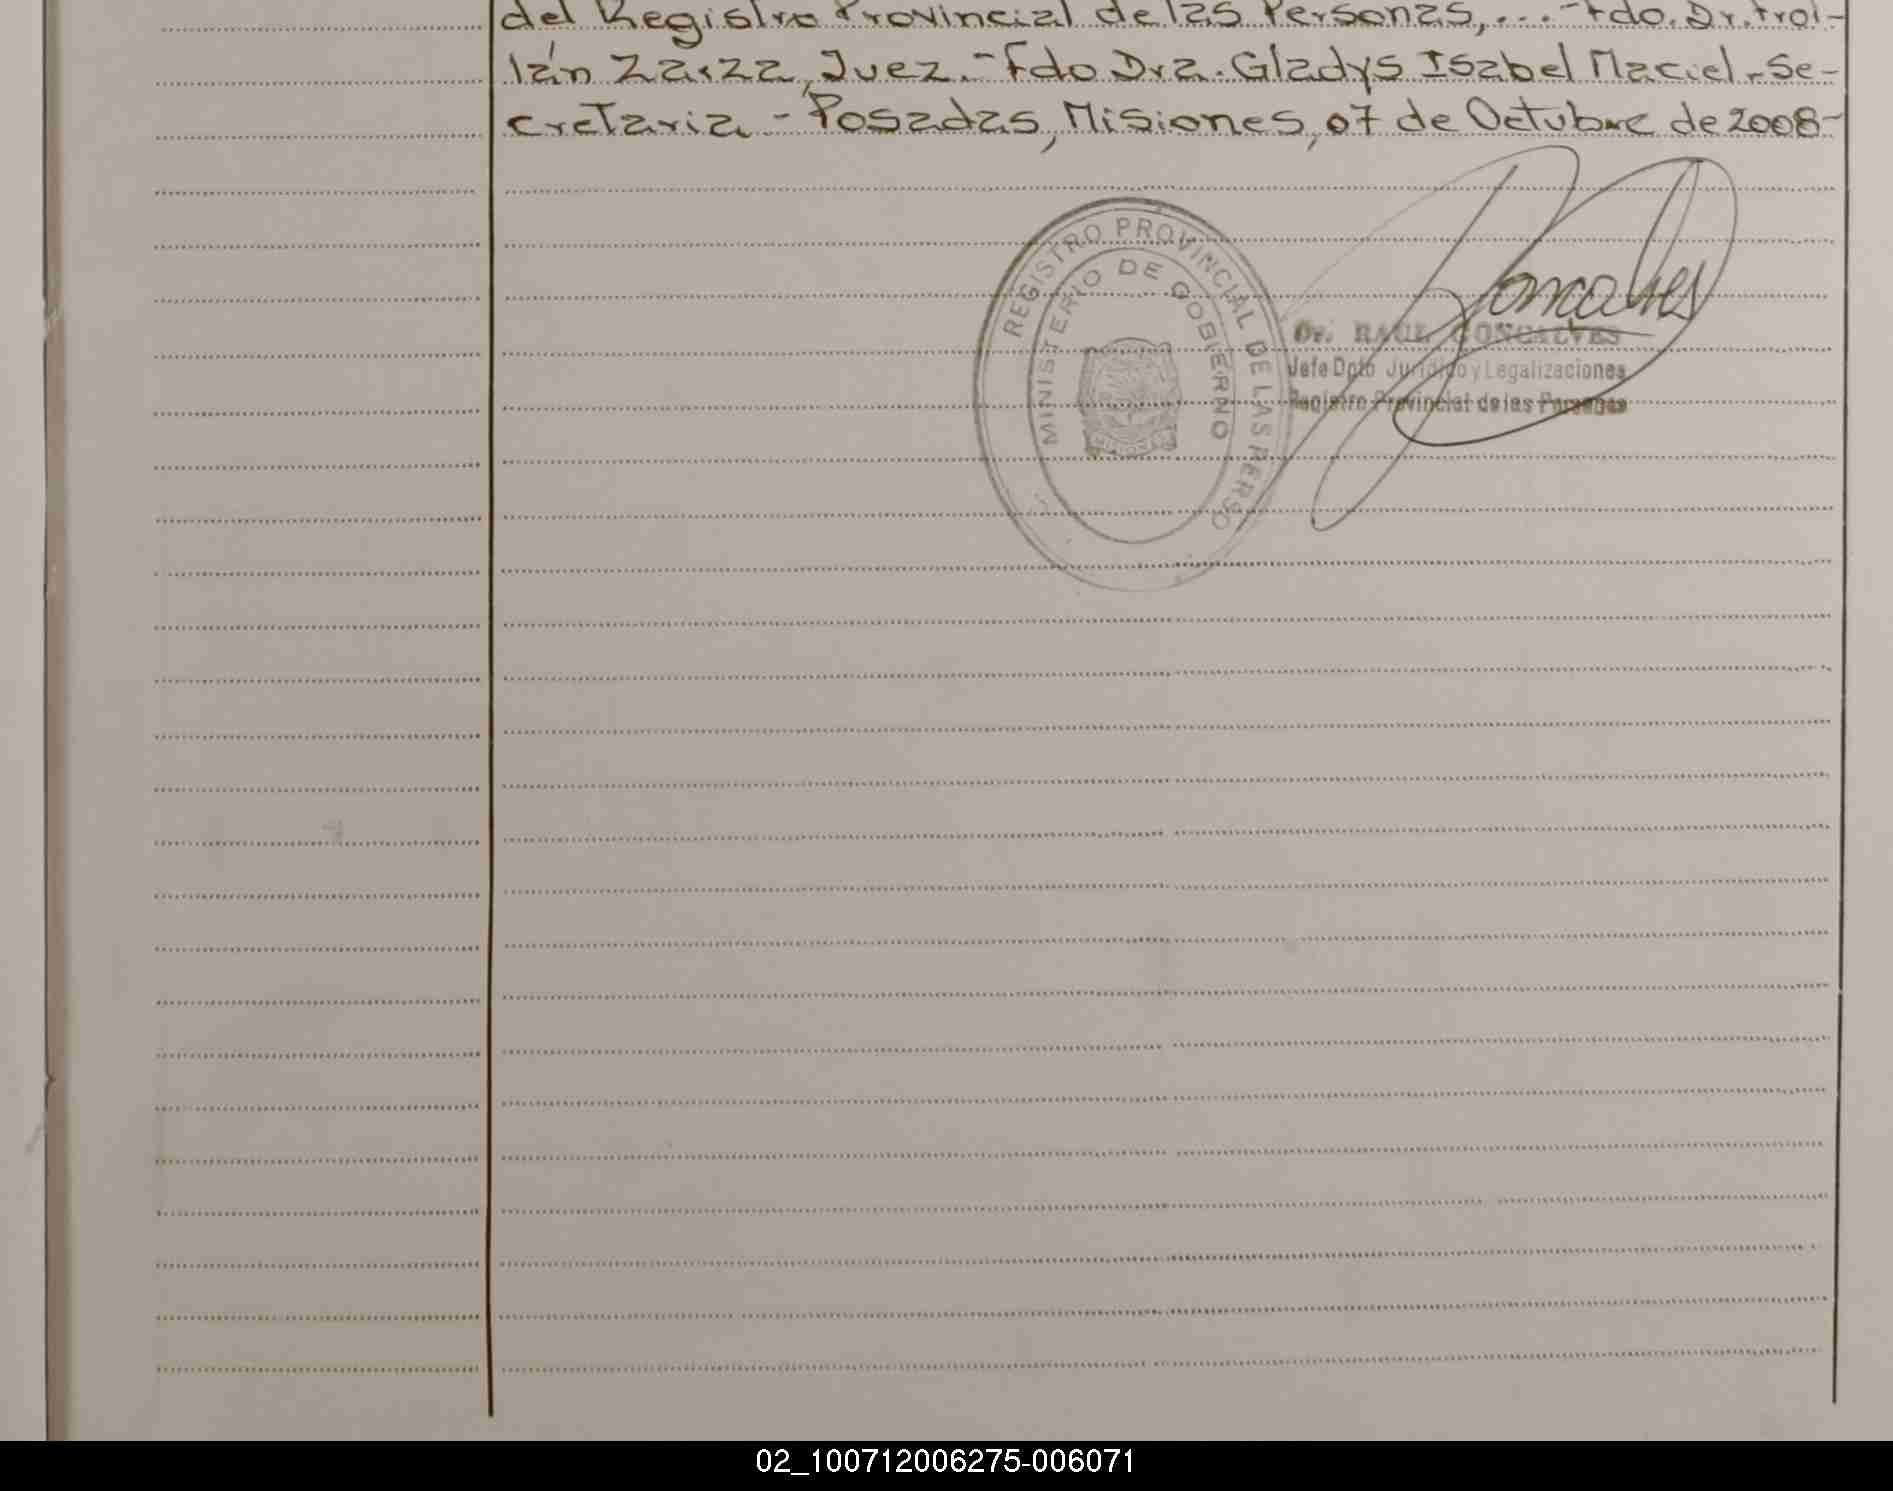 del Registro Provincial de las Personas,...-Fdo. Dr. Froi-
lán Zarza, Juez.-Fdo Dra. Gladys Isabel Maciel.-Se-
cretaria - Posadas, Misiones, 07 de Octubre de 2008-
REGISTRO PROVINCIAL DE LAS PERSO
MINISTERIO DE GOBIERNO
MISIONES
Goncalves
Dr. RAUL GONCALVES
Jefe Dpto Jurídico y Legalizaciones
Registro Provincial de las Personas
02_100712006275-006071